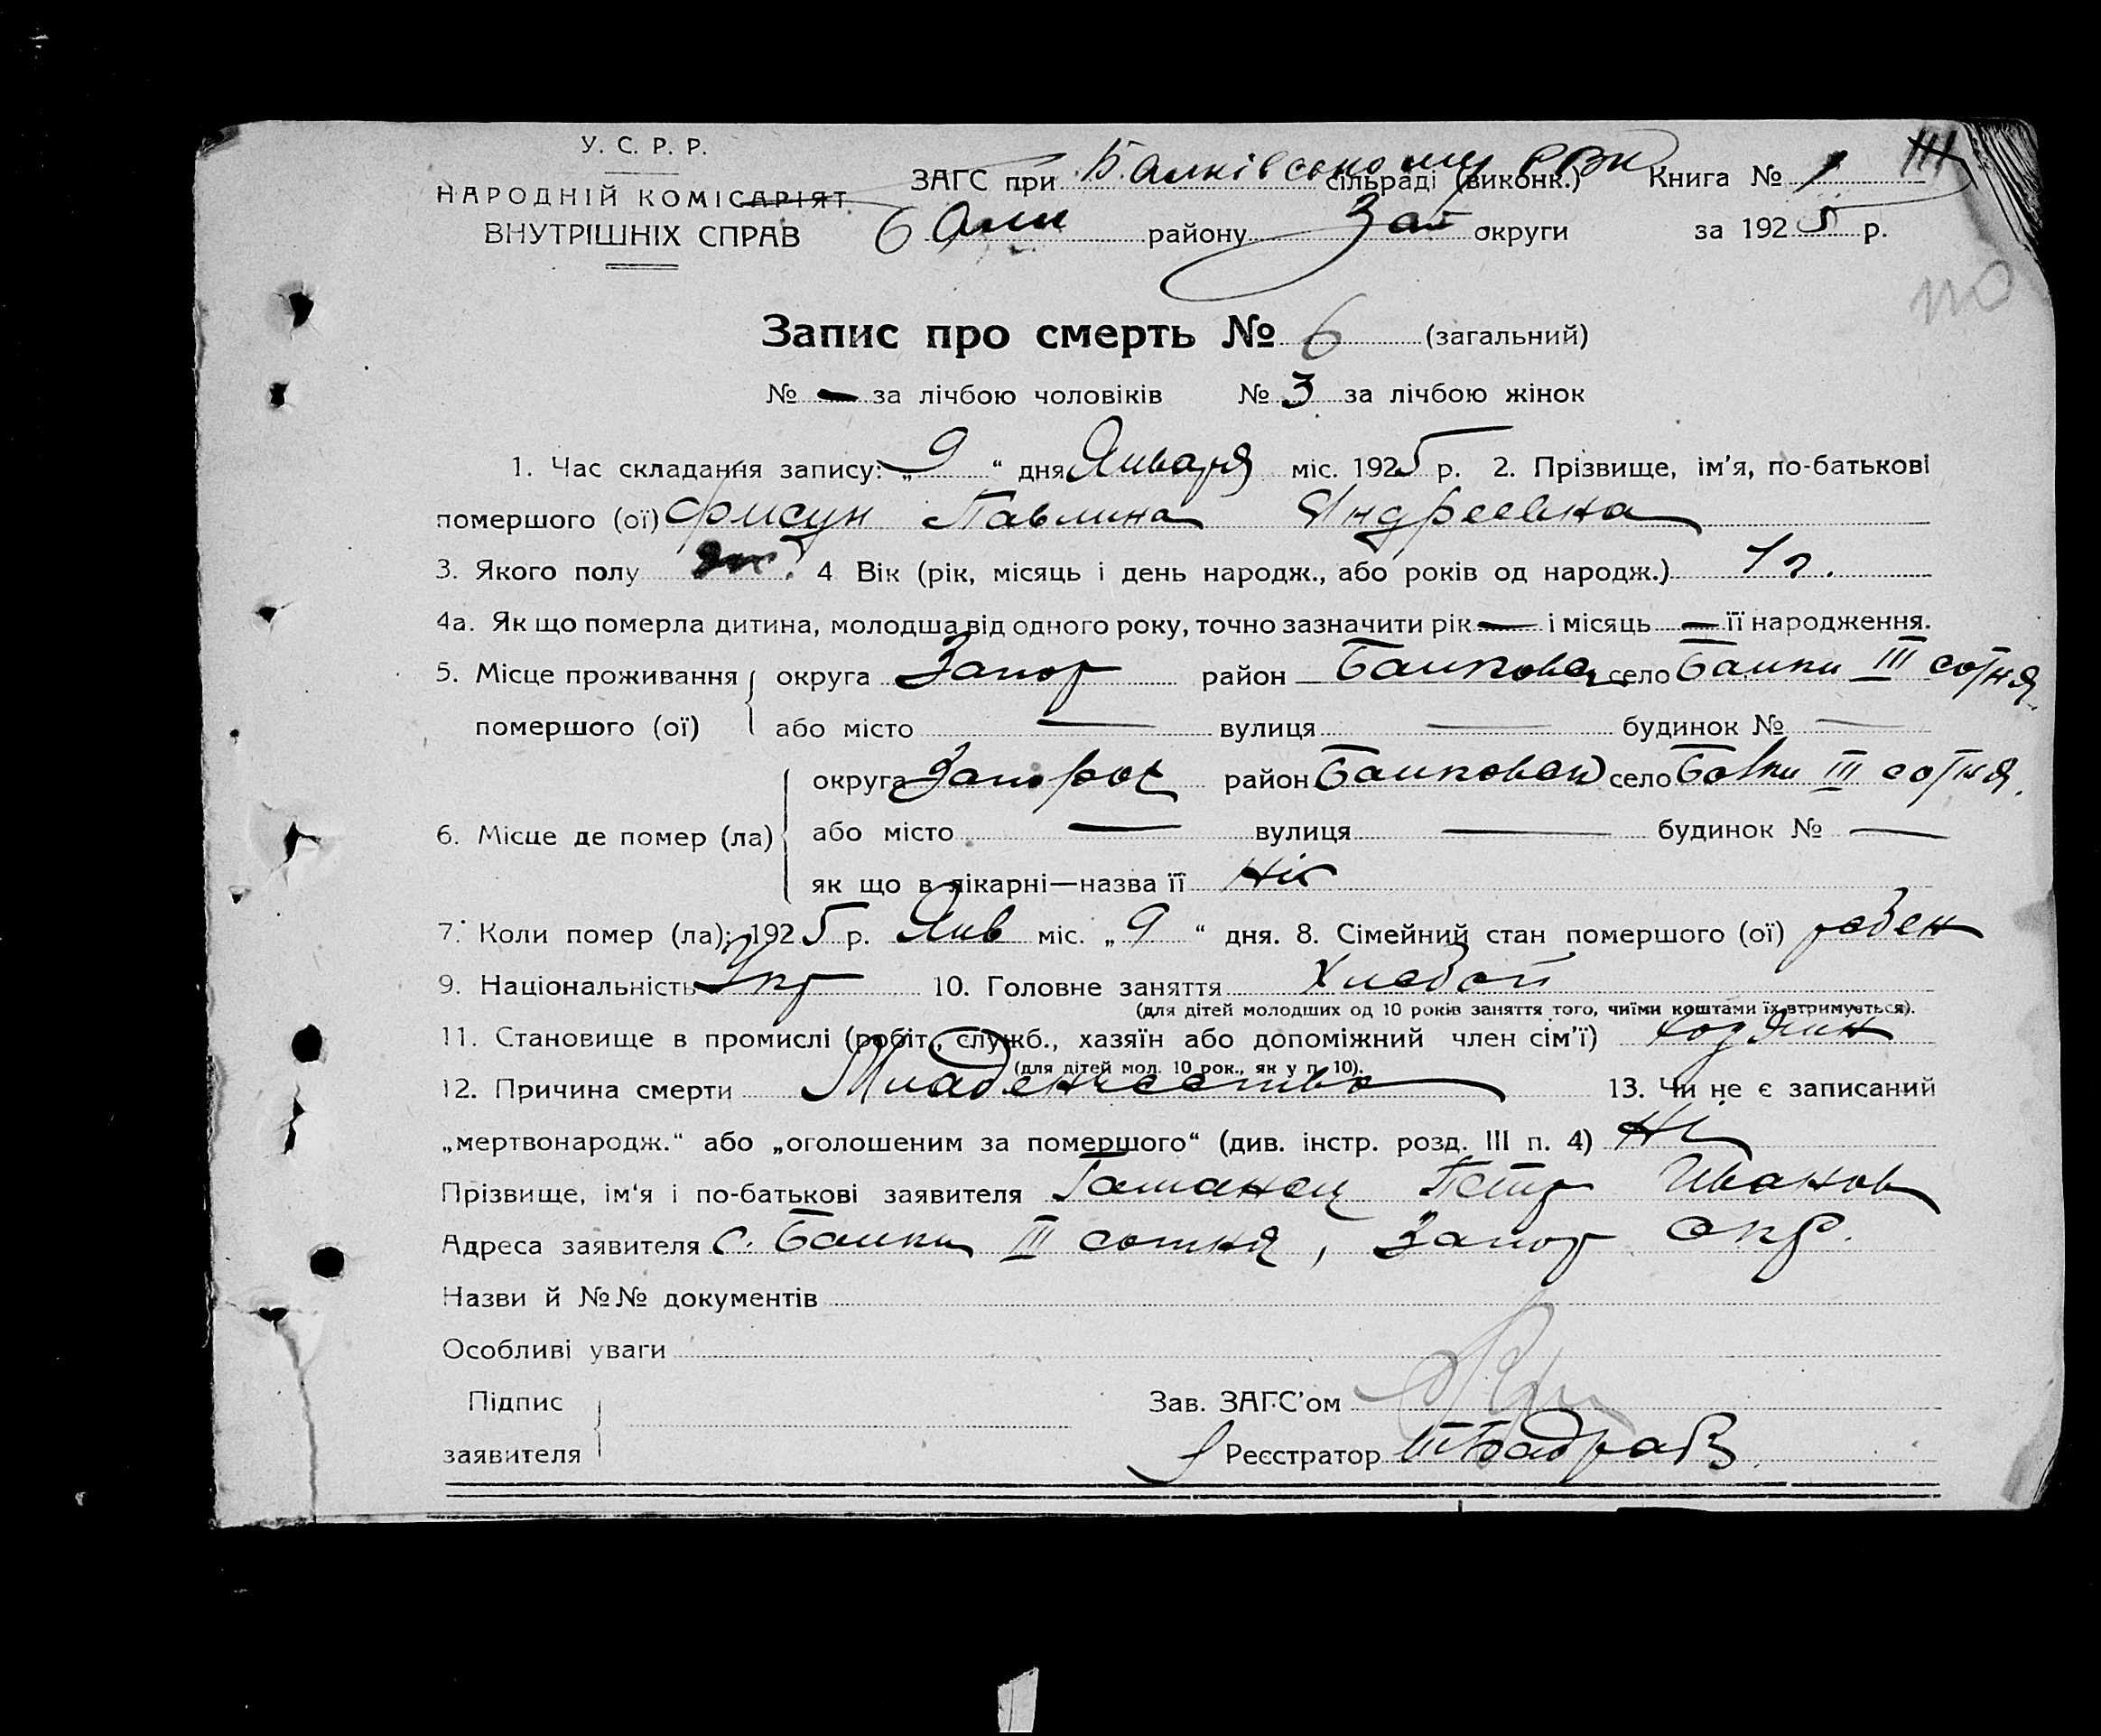 У. С. Р. Р.
НАРОДНІЙ КОМІСАРІЯТ
ВНУТРІШНІХ СПРАВ
ЗАГС при Балківському сільраді (виконк.) РВК Книга № 1
Балк району Зап округи за 1925 р.
110
Запис про смерть № 6 (загальний)
№ — за лічбою чоловіків № 3 за лічбою жінок
1. Час складання запису: „9“ дня Января міс. 1925 р. 2. Прізвище, ім'я, по-батькові
помершого (ої) Фисун Павлина Андреевна
3. Якого полу ж. 4 Вік (рік, місяць і день народж., або років од народж.) 1 г.
4а. Як що померла дитина, молодша від одного року, точно зазначити рік — і місяць — її народження.
5. Місце проживання округа Запор район Балковск село Балки III сотня
помершого (ої) або місто — вулиця — будинок № —
округа Запорож район Балковск село Балки III сотня.
6. Місце де помер (ла) або місто — вулиця — будинок № —
як що в лікарні—назва її Ніт
7. Коли помер (ла): 1925 р. Янв міс. „9“ дня. 8. Сімейний стан помершого (ої) ребен
9. Національність Укр 10. Головне заняття Хлебоп
(для дітей молодших од 10 років заняття того, чиїми коштами їх втримується).
11. Становище в промислі (робіт., служб., хазяїн або допоміжний член сім'ї) хозяин
(для дітей мол. 10 рок., як у п. 10).
12. Причина смерти Младенчество 13. Чи не є записаний
„мертвонародж.“ або „оголошеним за помершого“ (див. інстр. розд. III п. 4) Ні
Прізвище, ім'я і по-батькові заявителя Петр Иванов
Адреса заявителя с. Балки III сотня, Запор окр.
Назви й №№ документів
Особливі уваги
Підпис Зав. ЗАГС'ом
заявителя Реєстратор